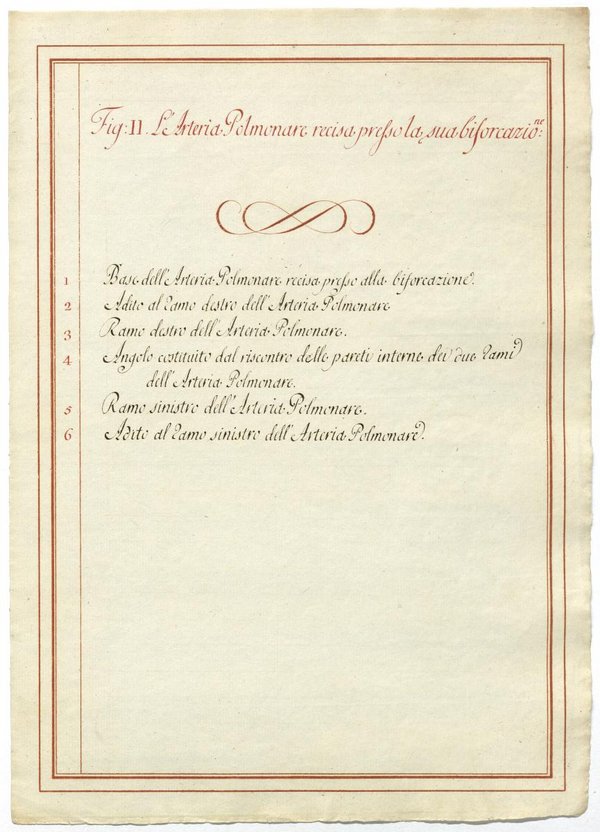 Fig: II. L'Arteria Polmonare recisa presso la sua biforcazio:ne
1 Base dell'Arteria Polmonare recisa presso alla biforcazione.
2 Adito al ramo destro dell'Arteria Polmonare
3 Ramo destro dell'Arteria Polmonare.
4 Angolo costituito dal riscontro delle pareti interne dei due rami
dell'Arteria Polmonare.
5 Ramo sinistro dell'Arteria Polmonare.
6 Adito al ramo sinistro dell'Arteria Polmonare.